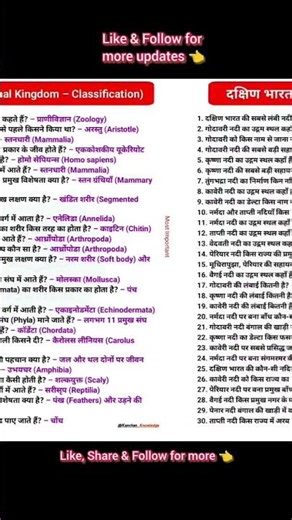 Like & Follow for
more updates 👈
al Kingdom – Classification)
कहते हैं? – प्राणीविज्ञान (Zoology)
से पहले किसने किया था? – अरस्तु (Aristotle)
– स्तनधारी (Mammalia)
प्रकार के जीव होते हैं? – एककोशकीय यूकेरियोट
है? – होमो सेपियन्स (Homo sapiens)
में आते हैं? – स्तनधारी (Mammalia)
प्रमुख विशेषता क्या है? – स्तन ग्रंथियाँ (Mammary
ख लक्षण क्या है? – खंडित शरीर (Segmented
वर्ग में आता है? – एनेलिडा (Annelida)
का शरीर किस तरह का होता है? – काइटिन (Chitin)
आते हैं? – आर्थ्रोपोडा (Arthropoda)
कौन सा है? – आर्थ्रोपोडा (Arthropoda)
मुख लक्षण क्या है? – नरम शरीर (Soft body) और
संघ में आते हैं? – मोलस्का (Mollusca)
mata) का शरीर किस प्रकार का होता है? – पंच
र्ग में आते हैं? – एकाइनोडर्मेटा (Echinodermata)
संघ (Phyla) माने जाते हैं? – लगभग 11 प्रमुख संघ
हैं? – कॉर्डेटा (Chordata)
ाली किसने दी? – कैरोलस लीनियस (Carolus
ी पहचान क्या है? – जल और थल दोनों पर जीवन
– उभयचर (Amphibia)
कैसी होती है? – शल्कयुक्त (Scaly)
में आते हैं? – सरीसृप (Reptilia)
वेशेषता क्या है? – पंख (Feathers) और उड़ने की
पाए जाते हैं? – चोंच
Most Important
@Kanchan_Knowledge
दक्षिण भारत
1. दक्षिण भारत की सबसे लंबी नदी
2. गोदावरी नदी का उद्गम स्थल कहाँ
3. गोदावरी को किस नाम से जाना
4. गोदावरी नदी की सबसे बड़ी सहा
5. कृष्णा नदी का उद्गम स्थल कहाँ है
6. कृष्णा नदी की सबसे बड़ी सहाय
7. तुंगभद्रा नदी का निर्माण किन नदियों
8. कावेरी नदी का उद्गम स्थल कहाँ
9. कावेरी नदी का डेल्टा किस
10. नर्मदा और ताप्ती नदियाँ किस
11. नर्मदा नदी का उद्गम स्थल कहाँ
12. ताप्ती नदी का उद्गम स्थल कहाँ
13. वेदवती नदी का उद्गम स्थल कहाँ
14. पेरियार नदी किस राज्य की प्रमु
15. भारतपुझा, पेरियार की सहायक
16. वैगई नदी का उद्गम स्थल कहाँ है
17. गोदावरी की लंबाई कितनी है?
18. कृष्णा नदी की लंबाई कितनी है?
19. कावेरी नदी की लंबाई कितनी है
20. नर्मदा नदी पर बना बाँध कौन-सा
21. गोदावरी नदी बंगाल की खाड़ी में
22. कृष्णा नदी का डेल्टा किस
23. कावेरी नदी पर सबसे प्रसिद्ध ज
24. नर्मदा नदी पर बना संगमरमर की
25. दक्षिण भारत की कौन-सी नदि
26. कावेरी नदी को किस राज्य का
27. पेरियार नदी पर बना प्रमुख बाँध
28. वैगई नदी किस प्रमुख नगर के प
29. पेनार नदी बंगाल की खाड़ी में क
30. ताप्ती नदी किस राज्य में अरब
Like, Share & Follow for more 👈